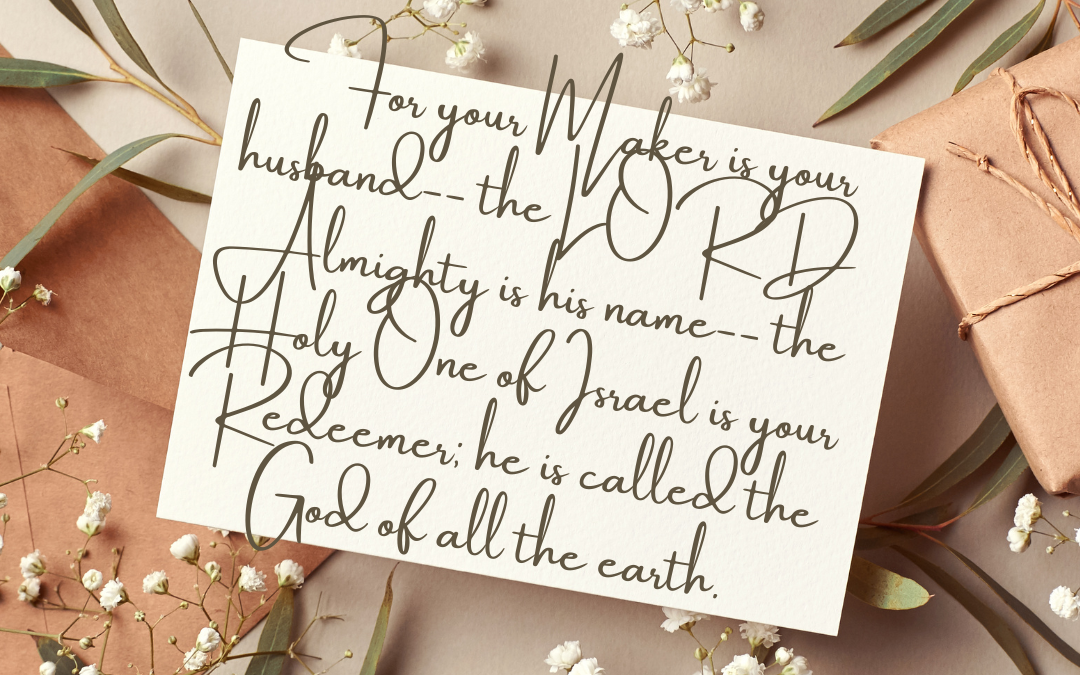 For your Maker is your
husband--the LORD
Almighty is his name--the
Holy One of Israel is your
Redeemer; he is called the
God of all the earth.